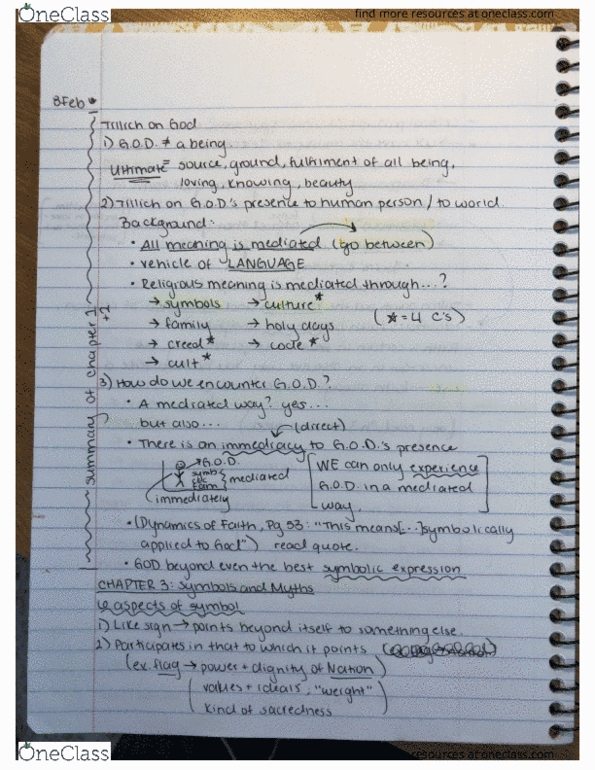 OneClass
find more resources at oneclass.com
8Feb
Tillich on God
1) G.O.D. ≠ a being
Ultimate = source, ground, fulfilment of all being,
loving, knowing, beauty
2) Tillich on G.O.D.'s presence to human person / to world.
Background:
• All meaning is mediated (go between)
• vehicle of LANGUAGE
• Religious meaning is mediated through...?
→ symbols → culture*
→ family → holy days (* = 4 C's)
→ creed* → code*
→ cult*
3) How do we encounter G.O.D.?
• A mediated way? yes...
but also... (direct)
• There is an immediacy to G.O.D.'s presence
→ G.O.D.
symb
fam } mediated
immediately
[WE can only experience
G.O.D. in a mediated
way.]
• (Dynamics of Faith, Pg 53: "This means[...]symbolically
applied to God") read quote.
• GOD beyond even the best symbolic expression
summary of chapter 1
+2
CHAPTER 3: Symbols and Myths
6 aspects of symbol
1) Like sign → points beyond itself to something else.
2) Participates in that to which it points
(ex. flag → power + dignity of Nation)
(values + ideals, "weight"
kind of sacredness)
OneClass
resources at oneclass.com